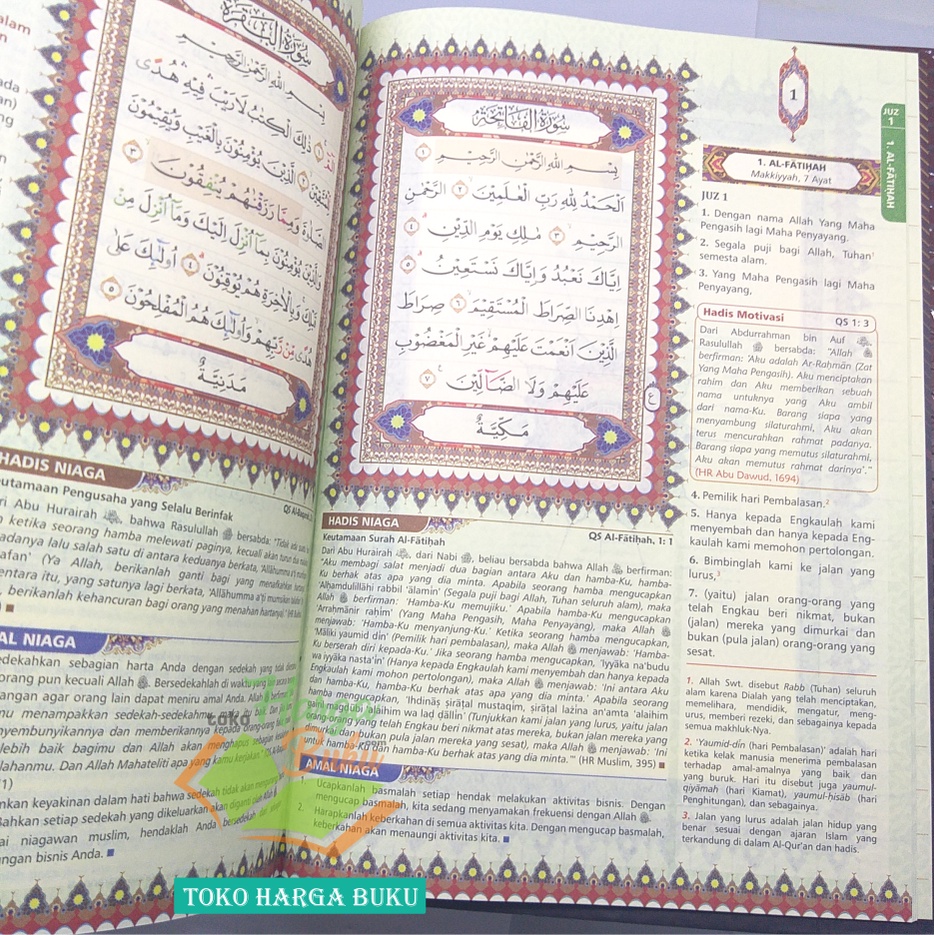 سُوْرَةُ الْبَقَرَةِ
بِسْمِ اللّٰهِ الرَّحْمٰنِ الرَّحِيْمِ
ذٰلِكَ الْكِتٰبُ لَا رَيْبَ فِيْهِ هُدًى
الَّذِيْنَ يُؤْمِنُوْنَ بِالْغَيْبِ وَيُقِيْمُوْنَ
الصَّلٰوةَ وَمِمَّا رَزَقْنٰهُمْ يُنْفِقُوْنَ ٣
وَالَّذِيْنَ يُؤْمِنُوْنَ بِمَآ اُنْزِلَ اِلَيْكَ وَمَآ اُنْزِلَ مِنْ
قَبْلِكَ وَبِالْاٰخِرَةِ هُمْ يُوْقِنُوْنَ ٤ اُولٰۤىِٕكَ عَلٰى
هُدًى مِّنْ رَّبِّهِمْ وَاُولٰۤىِٕكَ هُمُ الْمُفْلِحُوْنَ ٥
مَدَنِيَّةٌ
HADIS NIAGA
QS Al-Baqarah
eutamaan Pengusaha yang Selalu Berinfak
ri Abu Hurairah ﷺ, bahwa Rasulullah ﷺ bersabda: "Tidak
ketika seorang hamba melewati paginya, kecuali akan turun
adanya lalu salah satu di antara keduanya berkata, 'Allāhumma
afan' (Ya Allah, berikanlah ganti bagi yang menafkahkan
entara itu, yang satunya lagi berkata, 'Allāhumma a'ṭi mumsikan
, berikanlah kehancuran bagi orang yang menahan hartanya'."
AL NIAGA
edekahkan sebagian harta Anda dengan sedekah yang tidak
orang pun kecuali Allah ﷻ. Bersedekahlah di waktu
angan agar orang lain dapat meniru amal Anda. Allah
mu menampakkan sedekah-sedekahmu
nyembunyikannya dan memberikannya kepada orang
lebih baik bagimu dan Allah akan menghapus sebagian
lahanmu. Dan Allah Mahateliti apa yang kamu kerjakan."
1)
mkan keyakinan dalam hati bahwa sedekah tidak akan
Bahkan setiap sedekah yang dikeluarkan akan diganti
ai niagawan muslim, hendaklah Anda bersedekah
ngan bisnis Anda.
سُوْرَةُ الْفَاتِحَةِ
بِسْمِ اللّٰهِ الرَّحْمٰنِ الرَّحِيْمِ ١
اَلْحَمْدُ لِلّٰهِ رَبِّ الْعٰلَمِيْنَ ٢ الرَّحْمٰنِ
الرَّحِيْمِ ٣ مٰلِكِ يَوْمِ الدِّيْنِ ٤
اِيَّاكَ نَعْبُدُ وَاِيَّاكَ نَسْتَعِيْنُ ٥
اِهْدِنَا الصِّرَاطَ الْمُسْتَقِيْمَ ٦ صِرَاطَ
الَّذِيْنَ اَنْعَمْتَ عَلَيْهِمْ غَيْرِ الْمَغْضُوْبِ
عَلَيْهِمْ وَلَا الضَّاۤلِّيْنَ ٧
ع
مَكِّيَّةٌ
HADIS NIAGA
Keutamaan Surah Al-Fātiḥah QS Al-Fātiḥah, 1: 1
Dari Abu Hurairah, dari Nabi ﷺ, beliau bersabda bahwa Allah ﷻ berfirman:
'Aku membagi salat menjadi dua bagian antara Aku dan hamba-Ku, hamba-
Ku berhak atas apa yang dia minta. Apabila seorang hamba mengucapkan
'Alḥamdulillāhi rabbil 'ālamīn' (Segala puji bagi Allah, Tuhan seluruh alam), maka
Allah ﷻ berfirman: 'Hamba-Ku memujiku.' Apabila hamba-Ku mengucapkan
'Arraḥmānir raḥīm' (Yang Maha Pengasih, Maha Penyayang), maka Allah ﷻ
menjawab: 'Hamba-Ku menyanjung-Ku.' Ketika seorang hamba mengucapkan,
'Māliki yaumid dīn' (Pemilik hari pembalasan), maka Allah ﷻ menjawab: 'Hamba-
Ku berserah diri kepada-Ku.' Jika seorang hamba mengucapkan, 'Iyyāka na'budu
wa iyyāka nasta'īn' (Hanya kepada Engkaulah kami menyembah dan hanya kepada
Engkaulah kami mohon pertolongan), maka Allah ﷻ menjawab: 'Ini antara Aku
dan hamba-Ku, hamba-Ku berhak atas apa yang dia minta.' Apabila seorang
hamba mengucapkan, 'Ihdināṣ ṣirāṭal mustaqīm, ṣirāṭal lażīna an'amta 'alaihim
'alaihim wa laḍ ḍāllīn' (Tunjukkan kami jalan yang lurus, yaitu jalan
orang-orang yang telah Engkau beri nikmat atas mereka, bukan jalan mereka yang
dimurkai, bukan pula jalan mereka yang sesat), maka Allah ﷻ menjawab: 'Ini
untuk hamba-Ku dan hamba-Ku berhak atas yang dia minta.'" (HR Muslim, 395)
AMAL NIAGA
1. Ucapkanlah basmalah setiap hendak melakukan aktivitas bisnis. Dengan
mengucap basmalah, kita sedang menyamakan frekuensi dengan Allah ﷻ.
2. Harapkanlah keberkahan di semua aktivitas kita. Dengan mengucap basmalah,
keberkahan akan menaungi aktivitas kita.
1
JUZ
1
1. AL-FĀTIḤAH
1. AL-FĀTIḤAH
Makkiyyah, 7 Ayat
JUZ 1
1. Dengan nama Allah Yang Maha
Pengasih lagi Maha Penyayang.
2. Segala puji bagi Allah, Tuhan¹
semesta alam.
3. Yang Maha Pengasih lagi Maha
Penyayang,
Hadis Motivasi QS 1: 3
Dari Abdurrahman bin Auf,
Rasulullah ﷺ bersabda: "Allah ﷻ
berfirman: 'Aku adalah Ar-Raḥmān (Zat
Yang Maha Pengasih). Aku menciptakan
rahim dan Aku memberikan sebuah
nama untuknya yang Aku ambil
dari nama-Ku. Barang siapa yang
menyambung silaturahmi, Aku akan
terus mencurahkan rahmat padanya.
Barang siapa yang memutus silaturahmi,
Aku akan memutus rahmat darinya'."
(HR Abu Dawud, 1694)
4. Pemilik hari Pembalasan.²
5. Hanya kepada Engkaulah kami
menyembah dan hanya kepada Eng-
kaulah kami memohon pertolongan.
6. Bimbinglah kami ke jalan yang
lurus,³
7. (yaitu) jalan orang-orang yang
telah Engkau beri nikmat, bukan
(jalan) mereka yang dimurkai dan
bukan (pula jalan) orang-orang yang
sesat.
1. Allah Swt. disebut Rabb (Tuhan) seluruh
alam karena Dialah yang telah menciptakan,
memelihara, mendidik, mengatur, meng-
urus, memberi rezeki, dan sebagainya kepada
semua makhluk-Nya.
2. 'Yaumid-dīn (hari Pembalasan)' adalah hari
ketika kelak manusia menerima pembalasan
terhadap amal-amalnya yang baik dan
yang buruk. Hari itu disebut juga yaumul-
qiyāmah (hari Kiamat), yaumul-ḥisāb (hari
Penghitungan), dan sebagainya.
3. Jalan yang lurus adalah jalan hidup yang
benar sesuai dengan ajaran Islam yang
terkandung di dalam Al-Qur'an dan hadis.
toko
Harga
Buku
.com
TOKO HARGA BUKU